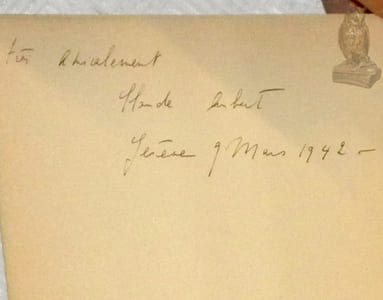 très amicalement
Claude Aubert
Genève 9 Mars 1942 -